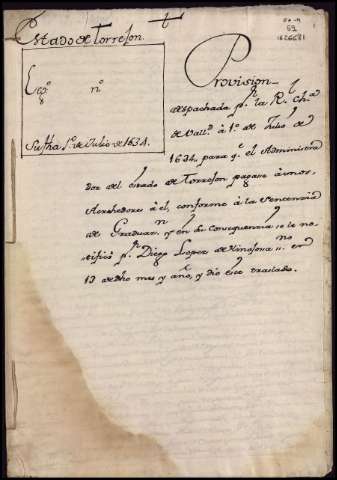 Estado de Torrejon
Leg.º nº
Su fha 1.º de Julio de 1634.
Provision
despachada p.r la R.l ch.a
de Vall.d à 1.º de Julio de
1634, para q.e el Administra
dor del estado de Torrejon pagase à unos
Acrehedores à él, conforme à la Sentencia
de Graduan.n y en su consequencia se le no
tificó p.r Diego Lopez de Hinojosa en
13 de dho mes y año, y dio este traslado.